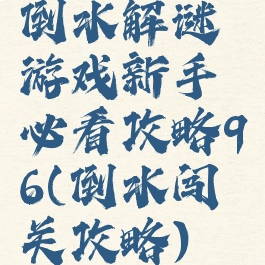 倒水解谜
游戏新手
必看攻略9
6(倒水闯
关攻略)